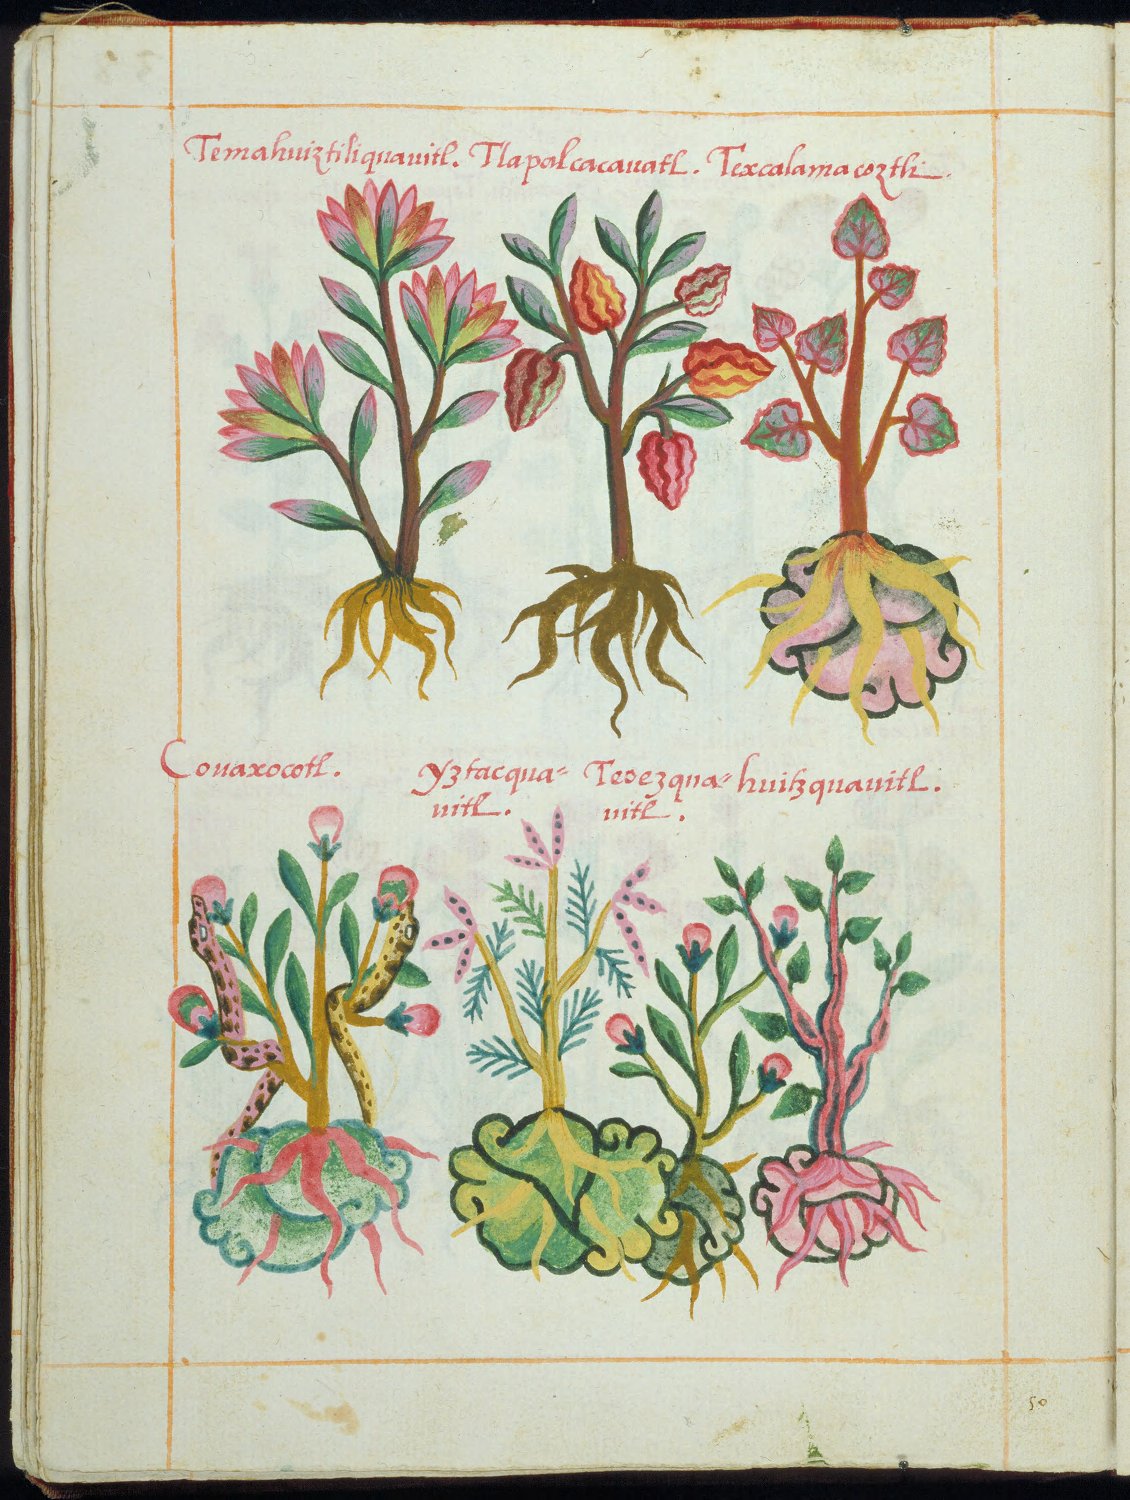 Temahuiztiliquauitl. Tlapalcacauatl. Texcalamacoztli.
Couaxocotl. Yztacqua= Teoezqua= huitzquauitl.
uitl. uitl.
50